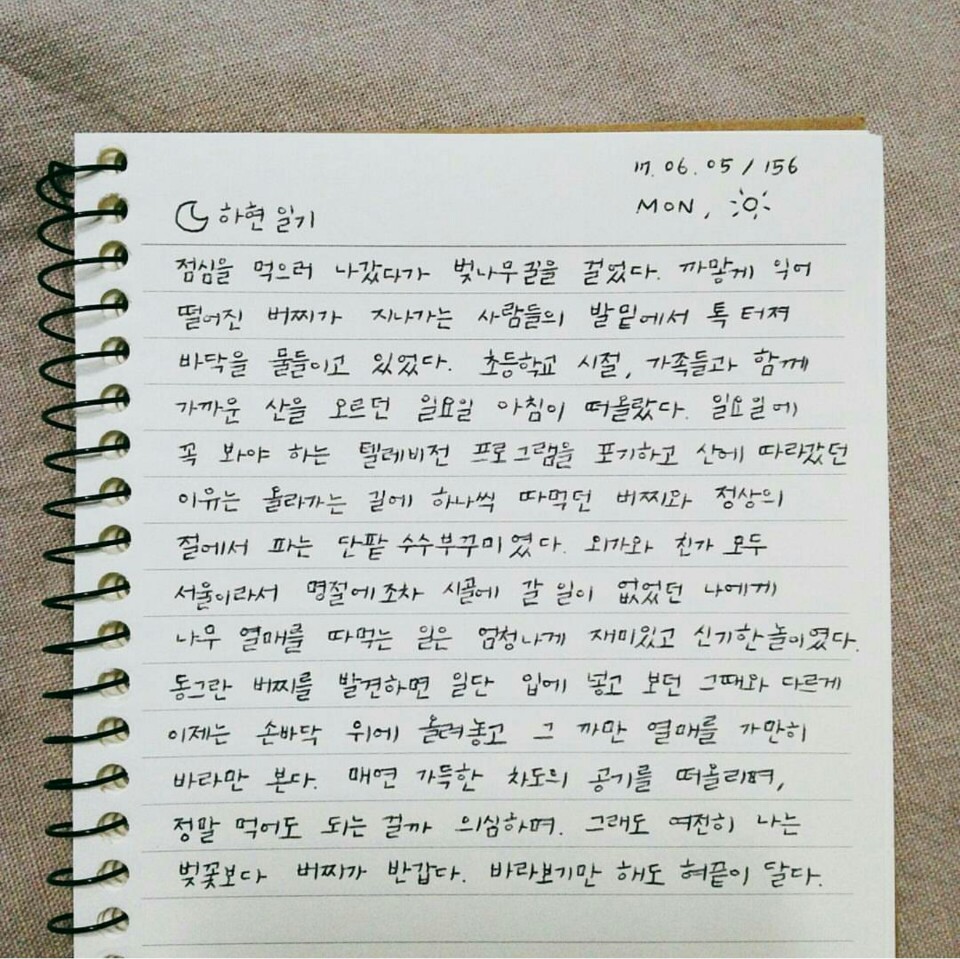 17. 06. 05 / 156
MON,
하현 일기
점심을 먹으러 나갔다가 벚나무 길을 걸었다. 까맣게 익어
떨어진 버찌가 지나가는 사람들의 발밑에서 톡 터져
바닥을 물들이고 있었다. 초등학교 시절, 가족들과 함께
가까운 산을 오르던 일요일 아침이 떠올랐다. 일요일에
꼭 봐야 하는 텔레비전 프로그램을 포기하고 산에 따라갔던
이유는 올라가는 길에 하나씩 따먹던 버찌와 정상의
절에서 파는 단팥 수수부꾸미였다. 외가와 친가 모두
서울이라서 명절에조차 시골에 갈 일이 없었던 나에게
나무 열매를 따먹는 일은 엄청나게 재미있고 신기한 놀이였다.
동그란 버찌를 발견하면 일단 입에 넣고 보던 그때와 다르게
이제는 손바닥 위에 올려놓고 그 까만 열매를 가만히
바라만 본다. 매연 가득한 차도의 공기를 떠올리며,
정말 먹어도 되는 걸까 의심하며. 그래도 여전히 나는
벚꽃보다 버찌가 반갑다. 바라보기만 해도 혀끝이 달다.